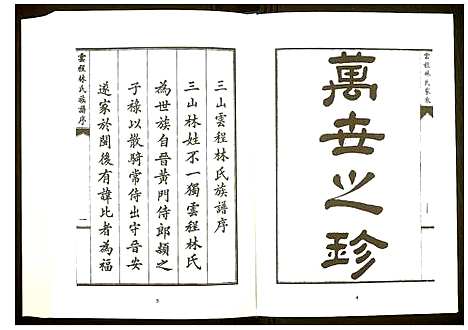 雲程林氏家乘
萬世之珍
三山雲程林氏族譜序
三山林姓不一獨雲程林氏
為世族自晉黃門侍郎穎之
子祿以散騎常侍出守晉安
遂家於閩後有諱比者為福
雲程林氏族譜序
一